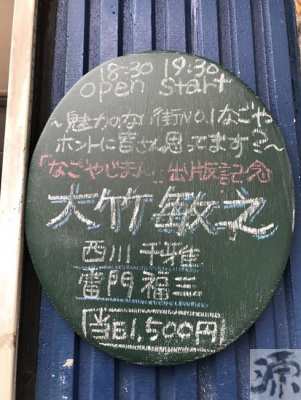 18-30 19:30
open start
~魅力のない街NO.1なごや
ホントに皆さん思ってます?~
「なごやじまん」出版記念
大竹敏之
西川千雅
雷門福三
当日1,500円
源